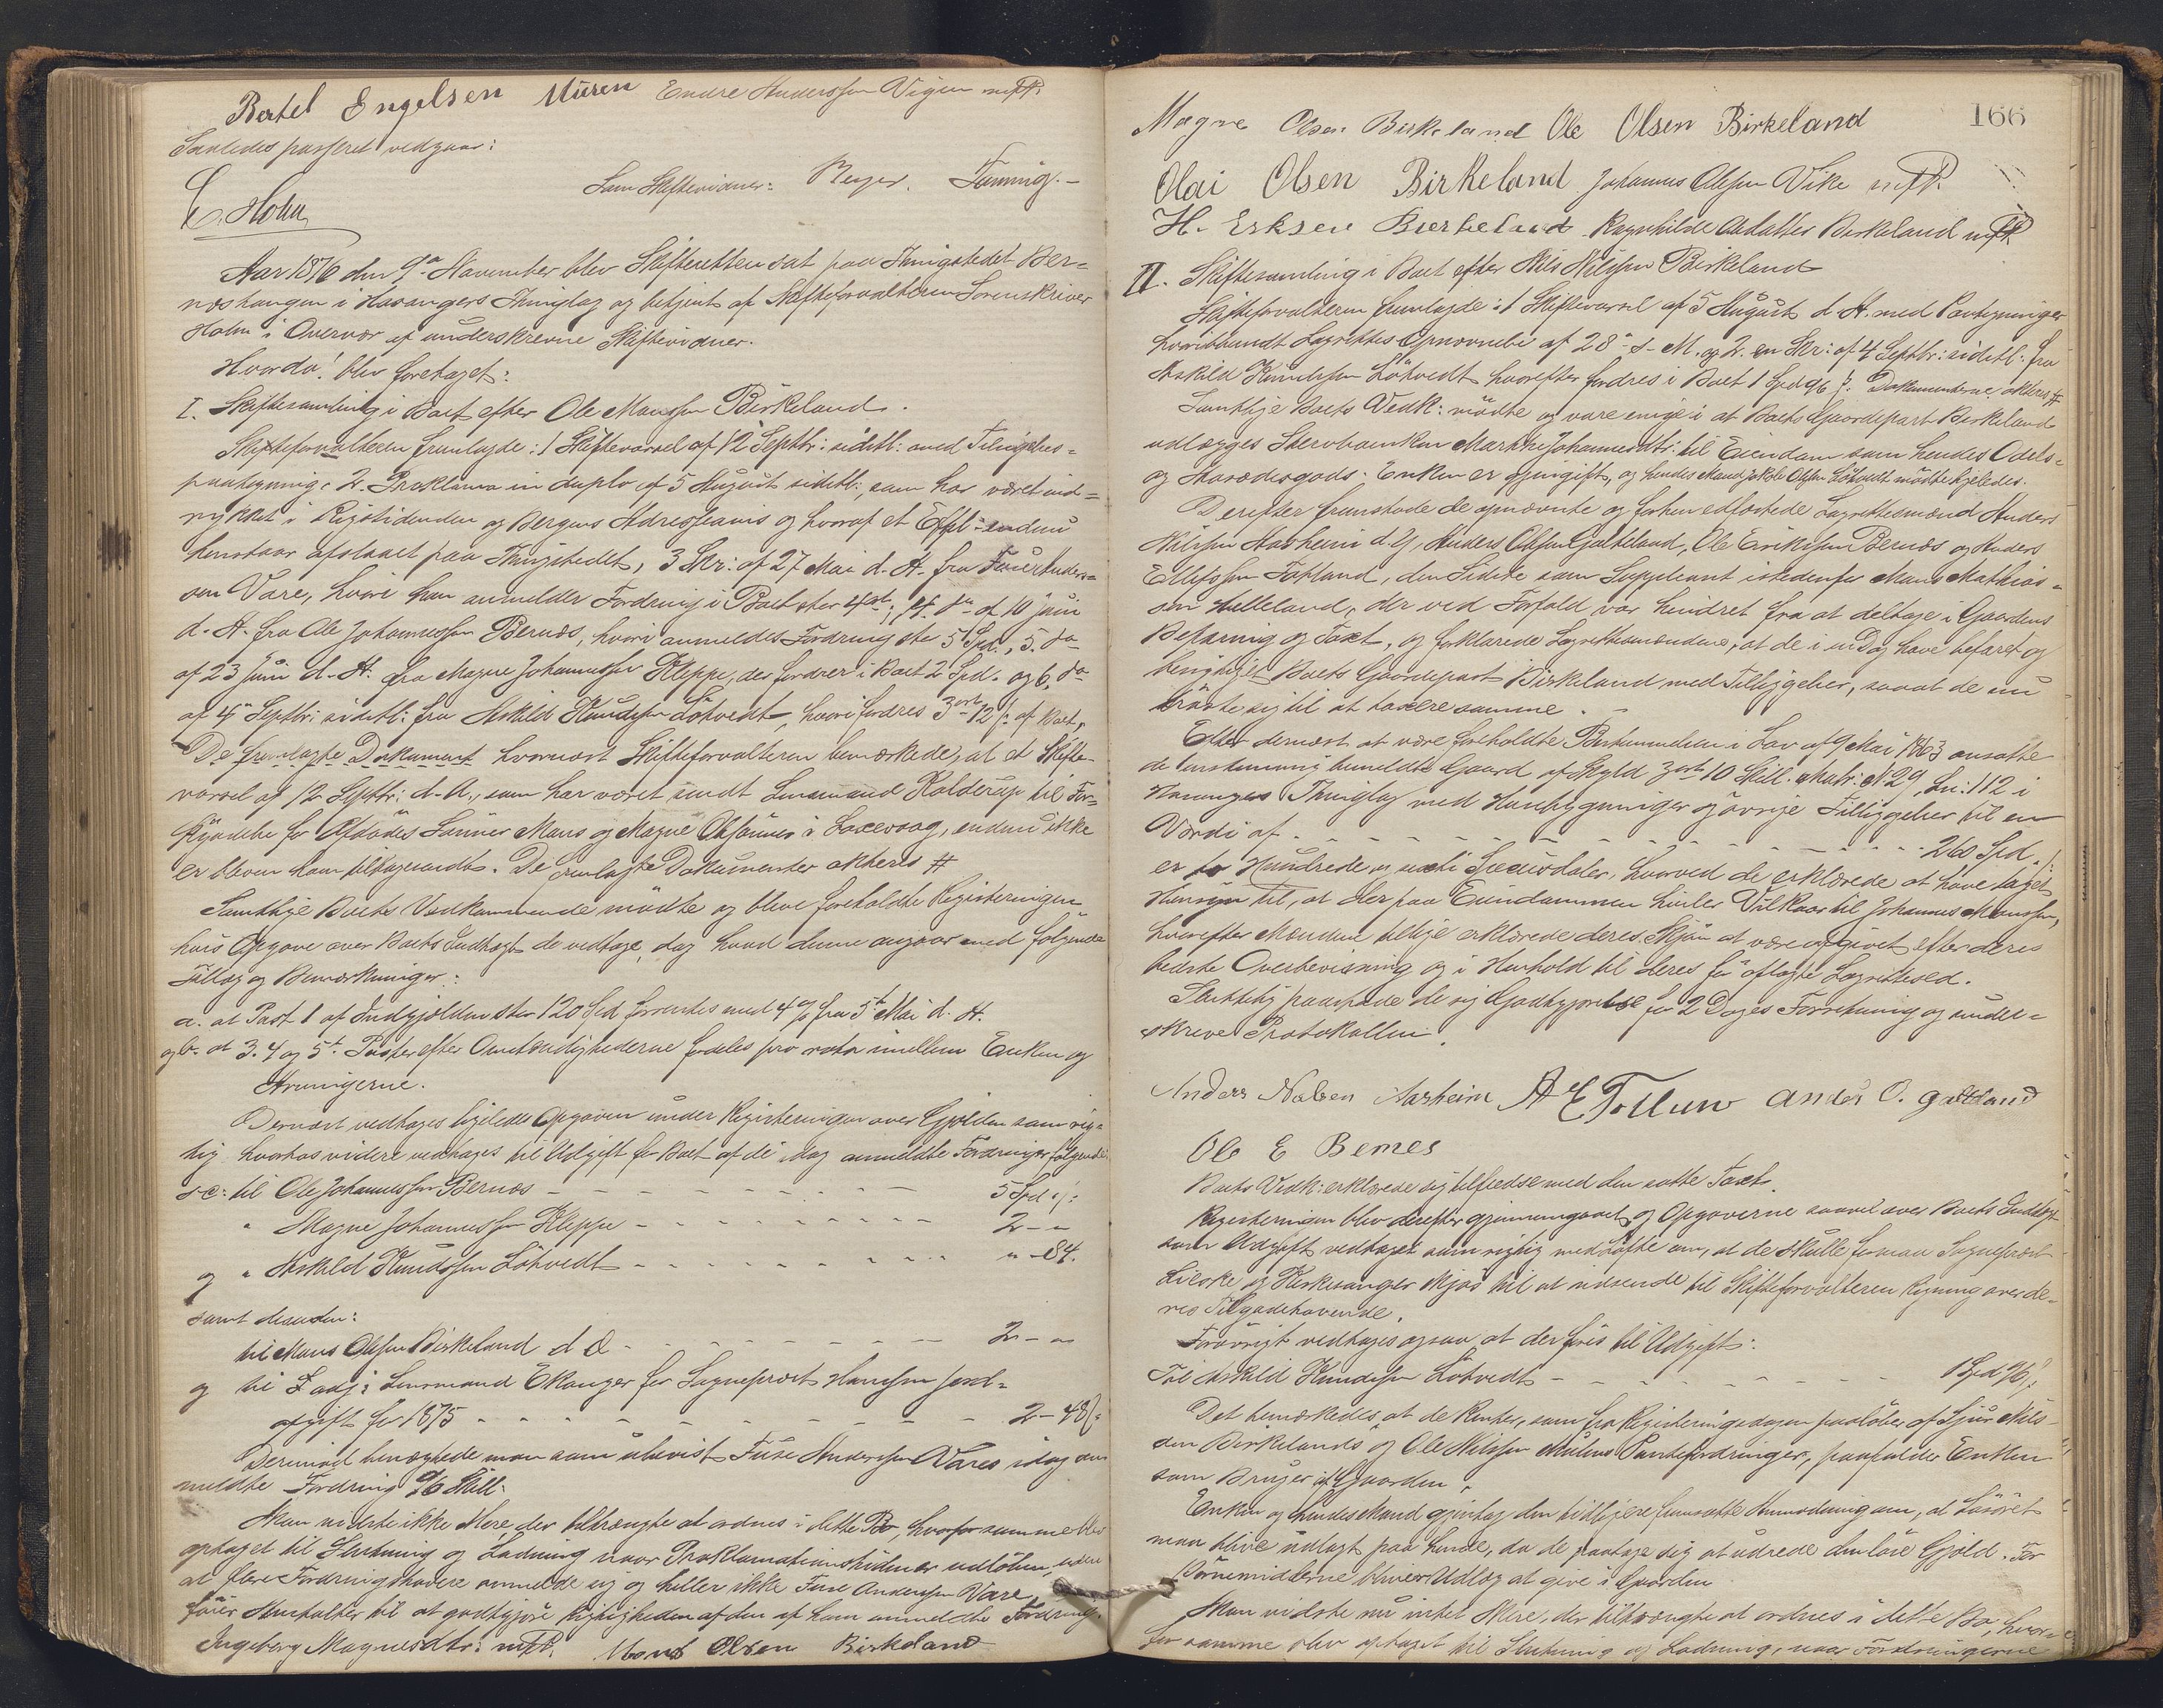 Bertel Engelsen Muren Endre Anderssen Vigen m.f.P.
Saaledes passeret vedgaar:
Som Skiftevidner: Meyer. Fanning.-
E. Holm
Aar 1876 den 9de November blev Skifteretten sat paa Thingstedet Ber=
næshangen i Hosangers Thinglag og betjent af Skifteforvalteren Sorenskriver
Holm i Overvær af underskrevne Skiftevidner.
Hvorda! blev foretaget:
I. Skiftesamling i Boet efter Ole Monssen Birkeland.
Skifteforvalteren fremlagde: 1 Skiftevarsel af 12 Septbr: sidstl: med Tilsigelses=
paategning. 2. Proklama in duplo af 5 August sidstl:, som har været ind=
rykket i Rigstidenden og Bergens Adresseavis og hvoraf et Expl: endnu
henstaar afslaaet paa Thingstedet, 3 Skr: af 27 Mai d. A. fra Anders=
sen Vare, hvori han anmelder Fordring i Boet stor 4 ort; 4. do af 10 Juni
d. A. fra Ole Johannessen Bernæs, hvori anmeldes Fordring stor 5 Spd., 5. do
af 23 Juni d. A. fra Magne Johannessen Kleppe, der fordrer i Boet 2 Spd. og 6. do
af 4de Septbr: sidstl: fra Askild Knudssen Løtvedt, hvori fordres 3 ort 12 s: af Boet.
De fremlagte Dokument hvornæst Skifteforvalteren bemærkede, at et Skifte-
varsel af 12 Septbr: d. A., som har været sendt Lensmand Kolderup til For=
kyndelse for Afdødes Sønner Mons og Magne Olsønner i Laxevaag, endnu ikke
er bleven ham tilbagesendt. De fremlagte Dokumenter akteres #
Samtlige Boets Vedkommende mødte og bleve foreholdte Registeringen
hvis Opgave over Boets Indtægt de vedtage, dog hvad denne angaar med følgende
Tillæg og Bemærkninger:
a. at Post 1 af Indgjelden stor 120 Spd forrentes med 4 % fra 5te Mai d. A.
og b. at 3. 4 og 5te Poster efter Omstændighederne fordeles pro rata imellem Enken og
Arvingerne.
Dernæst vedtages ligeledes Opgaven under Registeringen over Gjelden som rig=
tig hvorhos videre vedtages til Udgift for Boet af de idag anmeldte Fordringer følgende
sc: til Ole Johannessen Bernæs - - - - 5 Spd s:
" Magne Johannessen Kleppe - - - - 2 - "
og " Askild Knudssen Løtvedt - - - - " - 84.
samt desuden:
til Mons Olssen Birkeland d Æ - - - - 2 - "
og til Lensmand Ekanger for Sogneprest Hanssen Jord=
afgift for 1875 - - - - 2 - 48 s:
Derimod benægtede man som ubevist Fuse Anderssen Vares idag an=
meldte Fordring 96 Skill:
Man vidste ikke Mere, der tiltrængte at ordnes i dette Bo, hvorfor samme blev
optaget til Slutning og Lodning naar Proklamationstiden er udløben, uden
at flere Fordringshavere anmelde sig og heller ikke Fuse Anderssen Vare
fører Anstalter til at godtgjøre Rigtigheden af den af ham anmeldte Fordring.
Ingeborg Magnesdtr: m.f.P. Mons Olsen Birkeland
166
Magne Olsen Birkeland Ole Olsen Birkeland
Olai Olsen Birkeland Johannes Olssen Vike m.f.P.
H. Eriksen Bierkeland Ragnhilde Oledatter Birkeland m.f.P.
II. Skiftesamling i Boet efter Nils Nilssen Birkeland
Skifteforvalteren fremlagde: 1 Skiftevarsel af 5 August d. A. med Paategninger
hvoriblandt Lagrettes Opnævnelse af 28de s. M. og 2. en Skr: af 4 Septbr: sidstl: fra
Askild Knudssen Løtvedt hvorefter fordres i Boet 1 Spd 96 s: Dokumenterne akteres #
Samtlige Boets Vedk: mødte og vare enige i at Boets Gaardepart Birkeland
udlægges Stervboenken Marthe Johannesdtr: til Eiendom som hendes Odels=
og Aasædesgods. Enken er gjengift, og hendes Mand Askild Olssen Løtvedt mødte ligeledes.
Derefter fremstode de opnævnte og forhen edfæstede Lagrettesmænd Anders
Nilssen Aasheim d. Y, Anders Olssen Galteland, Ole Erikssen Bernæs og Anders
Ellefssen Totland, den Sidste som Suppleant istedenfor Mons Mathias=
sen Helleland, der ved Forfald var hindret fra at deltage i Gaardens
Befaring og Taxt, og forklarede Lagrettesmændene, at de i u D og have befaret og
besigtiget Boets Gaardepart Birkeland med Tilliggelser, saaat de nu
trøste sig til at taxere samme.
Efter dernæst at være foreholdte Bestemmelsen i Lov af 9 Mai 1863 ansatte
de enstemmig bemeldte Gaard af Skyld 3 ort 10 Skill. Matr: N. 29, Ln: 112 i
Hosangers Thinglag med Huusbygninger og øvrige Tilliggelser til en
Værdi af - - - - 260 Spd.
er to Hundrede og sexti Speciedaler, hvorved de erklærede at have taget
Hensyn til, at der paa Eiendommen hviler Vilkaar til Johannes Monssen,
hvorefter Mændene tillige erklærede deres Skjøn at være afgivet efter deres
bedste Overbevisning og i Henhold til deres før aflagte Lagrettesed.
Sluttelig paastode de sig Godtgjørelse for 2 Dages Forretning og under=
skrevet Protokollen.
Anders Nielsen Aasheim A E Totlun Anders O. galteland
Ole E Bernes
Boets Vedk: erklærede sig tilfredse med den satte Taxt.
Registeringen blev derefter gjennemgaaet og Opgaverne saavel over Boets Indtægt
som Udgift vedtaget som rigtig med Løfte om, at de skulle formaa Sogneprest
Lieske og Kirkesanger Mjøs til at indsende til Skifteforvalteren Regning over de=
res Tilgodehavende.
Forøvrigt vedtages ogsaa at der føres til Udgift:
Til Askild Knudssen Løtvedt - - - - 1 Spd 96 s:
Det bemærkedes, at de Renter, som fra Registeringsdagen paaløber af Sjur Nils=
sen Birkelands og Ole Nilssen Mulens Panteforderinger, paafalder Enken
som Bruger af Gaarden.
Enken og hendes Mand gjentog den tidligere fremsatte Anmodning om, at Løsøret
maa blive udlagt paa hende, da de paatage sig at udrede den løse Gjeld. For
Børnemidlerne bliver Udlæg at give i Gaarden
Man vidste nu intet Mere, der tiltrængte at ordnes i dette Bo, hvor=
for samme blev optaget til Slutning og Lodning, naar Fordringerne